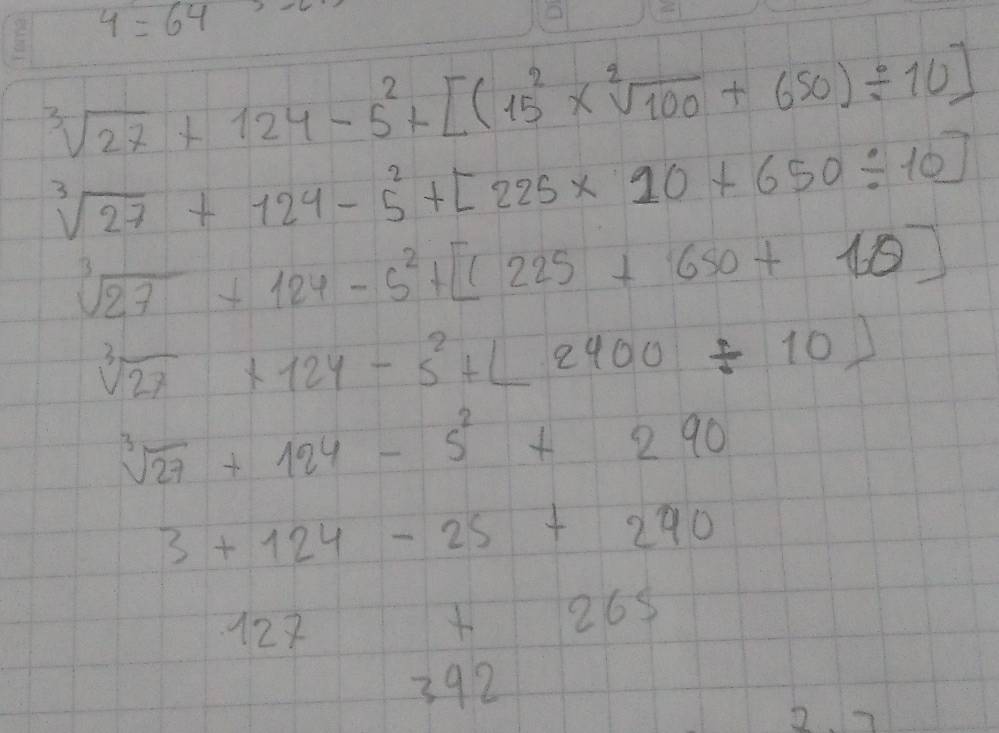 4 = 64
∛27 + 124 - 5² + [(15² × ²√100 + 650) ÷ 10]
∛27 + 124 - 5² + [225 × 10 + 650 ÷ 10]
∛27 + 124 - 5² + [( 225 + 650 + 10]
∛27 + 124 - 5² + [ 2900 ÷ 10]
∛27 + 124 - 5² + 290
3 + 124 - 25 + 290
127 + 265
392